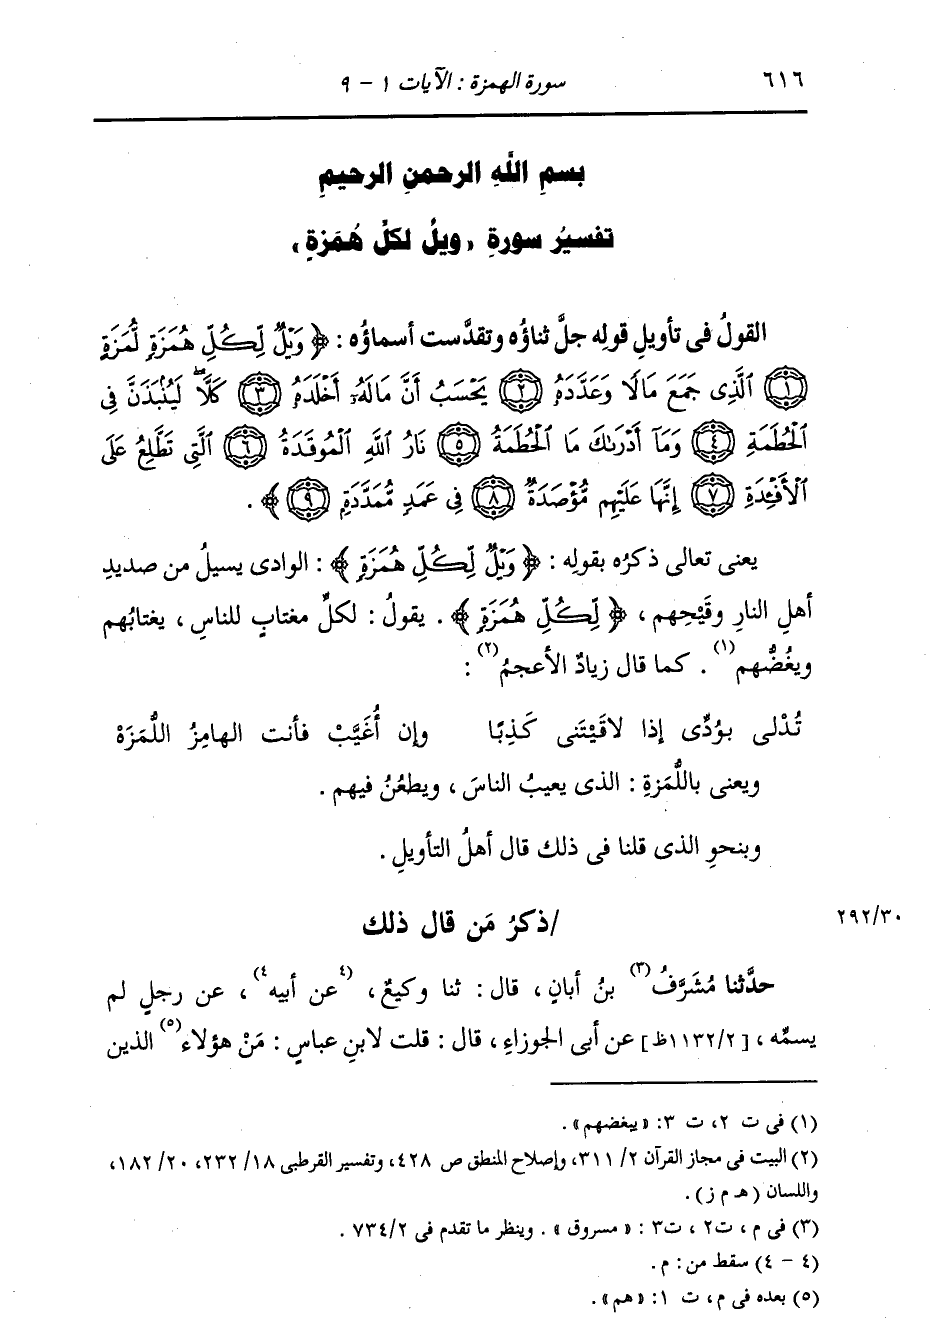 ٦١٦
سورة الهمزة : الآيات ١ - ٩
بسمِ اللَّهِ الرحمنِ الرحيمِ
تفسيرُ سورةِ «ويلٌ لكلِّ هُمَزةٍ»
القولُ فى تأويلِ قولِه جلَّ ثناؤُه وتقدَّست أسماؤُه : ﴿ وَيْلٌ لِّكُلِّ هُمَزَةٍ لُّمَزَةٍ
﴿١﴾ ٱلَّذِى جَمَعَ مَالًا وَعَدَّدَهُۥ ﴿٢﴾ يَحْسَبُ أَنَّ مَالَهُۥٓ أَخْلَدَهُۥ ﴿٣﴾ كَلَّاۖ لَيُنۢبَذَنَّ فِى
ٱلْحُطَمَةِ ﴿٤﴾ وَمَآ أَدْرَىٰكَ مَا ٱلْحُطَمَةُ ﴿٥﴾ نَارُ ٱللَّهِ ٱلْمُوقَدَةُ ﴿٦﴾ ٱلَّتِى تَطَّلِعُ عَلَى
ٱلْأَفْـِٔدَةِ ﴿٧﴾ إِنَّهَا عَلَيْهِم مُّؤْصَدَةٌ ﴿٨﴾ فِى عَمَدٍ مُّمَدَّدَةٍ ﴿٩﴾ ﴾ .
يعنى تعالى ذكرُه بقولِه : ﴿ وَيْلٌ لِّكُلِّ هُمَزَةٍ ﴾ : الوادى يسيلُ من صديدِ
أهلِ النارِ وقَيْحِهم ، ﴿ لِّكُلِّ هُمَزَةٍ ﴾ . يقولُ : لكلِّ مغتابٍ للناسِ ، يغتابُهم
ويغُضُّهم(١) . كما قال زيادٌ الأعجمُ(٢) :
تُدْلى بوُدِّى إذا لاقَيْتَنى كَذِبًا وإن أُغَيَّبْ فأنت الهامِزُ اللُّمَزَهْ
ويعنى باللُّمَزةِ : الذى يعيبُ الناسَ ، ويطعُنُ فيهم .
وبنحوِ الذى قلنا فى ذلك قال أهلُ التأويلِ .
/ذكرُ مَن قال ذلك
٢٩٢/٣٠
حدَّثنا مُشَرَّفُ(٣) بنُ أبانٍ ، قال : ثنا وكيعٌ ، (٤عن أبيه٤) ، عن رجلٍ لم
يسمِّه ، [١١٣٢/٢ظ] عن أبى الجوزاءِ ، قال : قلت لابنِ عباسٍ : مَنْ هؤلاء(٥) الذين
(١) فى ت ٢، ت ٣: «يبغضهم».
(٢) البيت فى مجاز القرآن ٢/ ٣١١، وإصلاح المنطق ص ٤٢٨، وتفسير القرطبى ١٨/ ٢٣٢، ٢٠/ ١٨٢،
واللسان (هـ م ز).
(٣) فى م ، ت٢ ، ت٣ : « مسروق » . وينظر ما تقدم فى ٧٣٤/٢ .
(٤ - ٤) سقط من : م.
(٥) بعده فى م، ت ١: «هم».